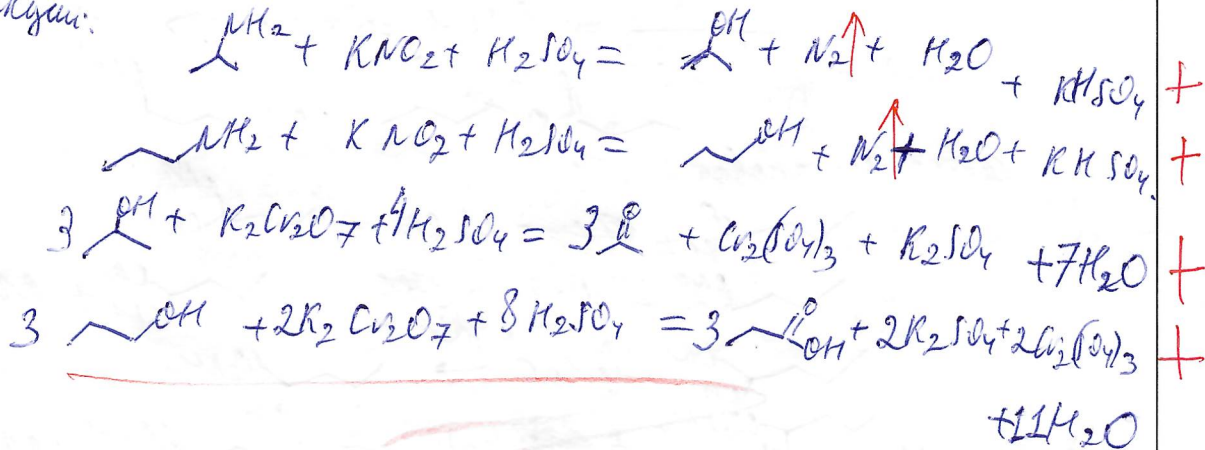 NH2 + KNO2 + H2SO4 = OH + N2↑ + H2O + KHSO4 +
NH2 + KNO2 + H2SO4 = OH + N2↑ + H2O + KHSO4. +
3 OH + K2Cr2O7 + 4H2SO4 = 3 O + Cr2(SO4)3 + K2SO4 + 7H2O +
3 OH + 2K2Cr2O7 + 8H2SO4 = 3 O OH + 2K2SO4 + 2Cr2(SO4)3 +
+ 11H2O